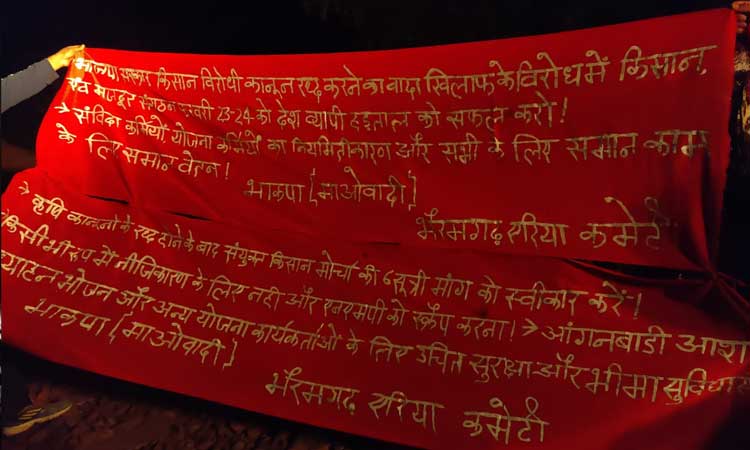 भाजपा सरकार किसान विरोधी कानून रद्द करने का वादा खिलाफ के विरोध में किसान,
एवं मजदूर संगठन फरवरी 23-24 को देश व्यापी हड़ताल को सफल करो!
→ संविदा कर्मियों योजना कर्मियों का नियमितीकारण और सभी के लिए समान काम
के लिए समान वेतन!
भाकपा [माओवादी]
भैरमगढ़ एरिया कमेटी
→ कृषि कानूनो के रद्द होने के बाद संयुक्त किसान मोर्चा की 6 सूत्री मांग को स्वीकार करें!
किसी भी रूप में नीजिकारण के लिए नही और एनएमपी को स्क्रैप करना! → आंगनबाडी आशा
भोजन और अन्य योजना कार्यकर्ताओं के लिए उचित सुरक्षा और भीमा सुविधा
भाकपा [माओवादी]
भैरमगढ़ एरिया कमेटी